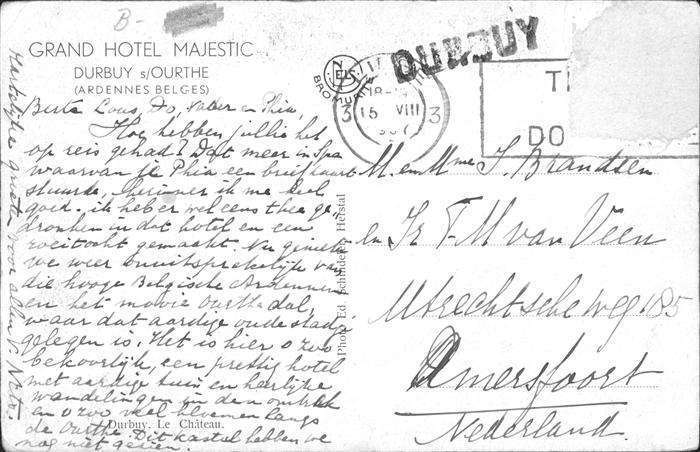 B-
GRAND HOTEL MAJESTIC
DURBUY s/OURTHE
(ARDENNES BELGES)
Beste Lous, Jo, Vader en Phia,
Hoe hebben jullie het
op reis gehad? Dat meer in Spa
waarvan je Phia een briefkaart
stuurde, herinner ik me heel
goed. ik heb er wel eens thee ge-
dronken in dat hotel en een
roeitocht gemaakt. Nu genieten
we weer onuitsprekelijk van
die hooge Belgische Ardennen
en het mooie Ourthe dal,
waar dat aardige oude stadje
gelegen is. Het is hier o zoo
bekoorlijk, een prettig hotel
met aardige tuin en heerlijke
wandelingen in den omtrek
en o zoo veel bloemen langs
de Ourthe. Dit kasteel hebben we
nog niet gezien.
Durbuy. Le Château.
Hartelijke groeten voor allen
Photo Ed. Herstal
DURBUY
15 VIII
3 3
T
DO
M. en Mme J. Brandsen
en Ir F. M. van Veen
Utrechtsche weg 185
Amersfoort
Nederland.